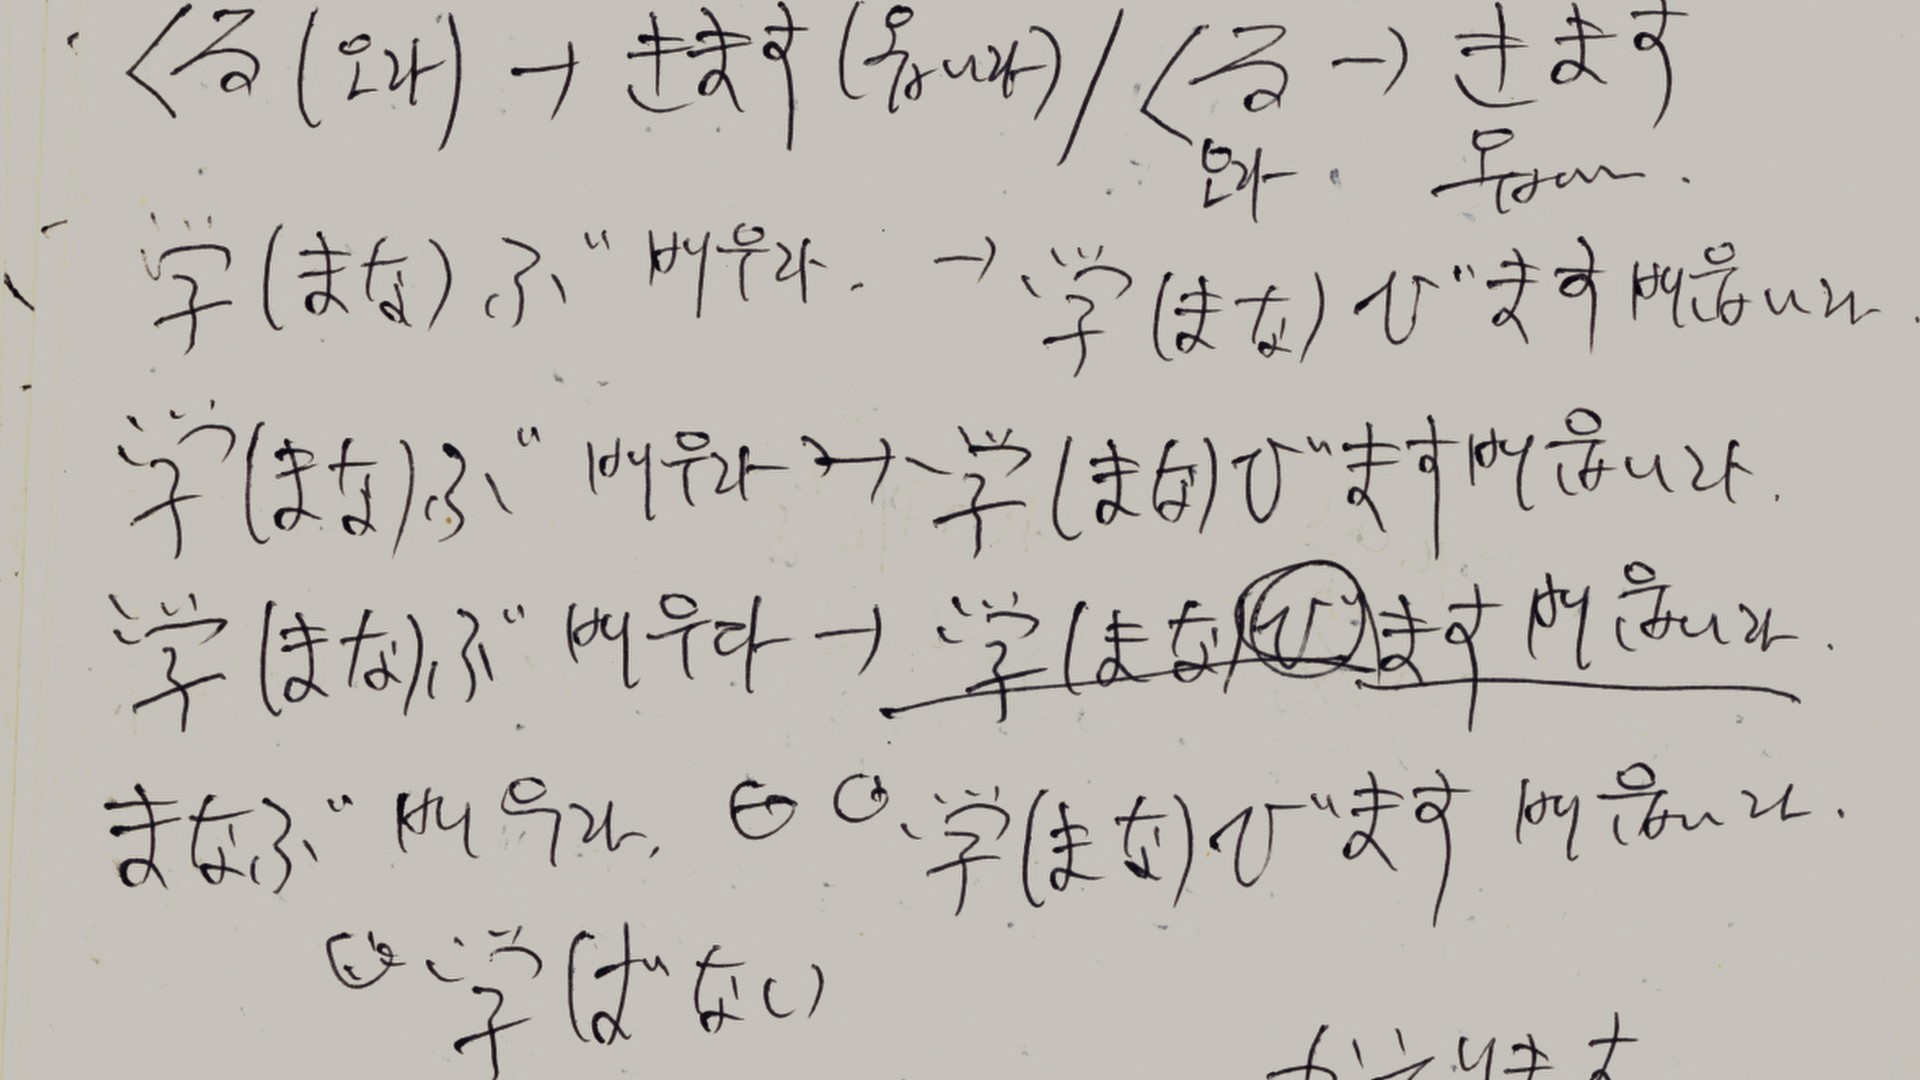 くる (오다) → きます (옵니다) / くる → きます
오다. 옵니다.
学(まな)ぶ 배우다. → 学(まな)びます 배웁니다.
学(まな)ぶ 배우다 → 学(まな)びます 배웁니다.
学(まな)ぶ 배우다 → 学(まな)びます 배웁니다.
まなぶ 배우다. 学(まな)びます 배웁니다.
学(ばない)